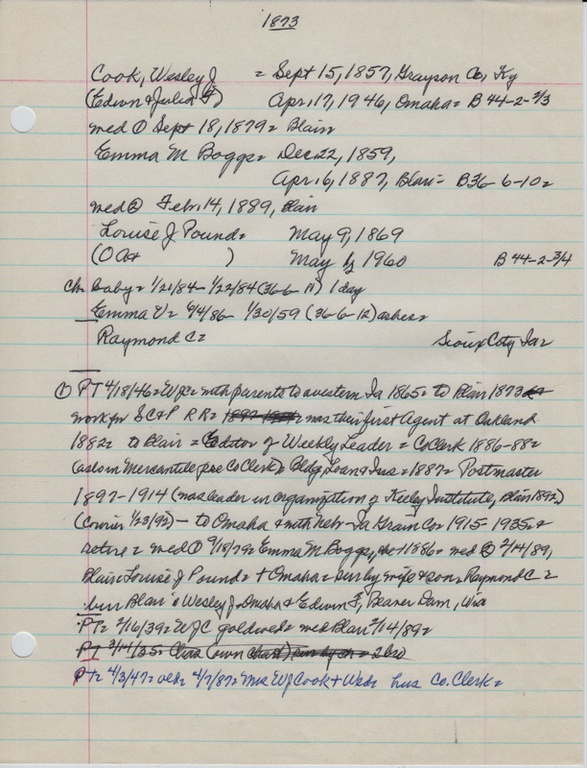 1873
Cook, Wesley J = Sept 15, 1857, Grayson Co, Ky
(Edwn & Julia F) Apr. 17, 1946, Omaha = B 44-2-2/3
med ① Sept 18, 1879 = Blair
Emma M Boggs = Dec. 22, 1859,
Apr. 6, 1887, Blair = B36-6-10 =
med ② Febr. 14, 1889, Blair
Louise J Pound = May 9, 1869
(O A ) May 1960 B 44-2-3/4
Ch. baby = 1/21/84 - 1/22/84 (36-6-11) 1 day
Emma V = 9/4/86 - 1/30/59 (36-6-12) ashes =
Raymond C = Sioux City Ia =
① PT 4/18/46 = WJC = with parents to western Ia 1865 = to Blair 1873
work for SC&P RR = was their first Agent at Oakland
1882 = to Blair = Editor of Weekly Leader = Co Clerk 1886-88 =
(also in Mercantile Co Clerk) = Bldg, Loan & Ins = 1887 = Postmaster
1897-1914 (was leader in organization of Keeley Institute, Blair 1892)
(Courier 1/23/92) - to Omaha & with Nebr-Ia Grain Co = 1915-1935 = &
retire = med ① 9/18/79 = Emma M Boggs, 1886 = med ② 2/14/89,
Blair = Louise J Pound = + Omaha = surv by wife & son = Raymond C =
bur Blair Wesley J = Omaha & Edwin F, Beaver Dam, Wis
PT = 2/16/39 = WJC gold wed = med Blair 2/14/89 =
PT 3/14/35 = = 2 bro
PT = 4/3/47 = old = 4/7/87 = Mrs WJ Cook + Wed = hus Co. Clerk =